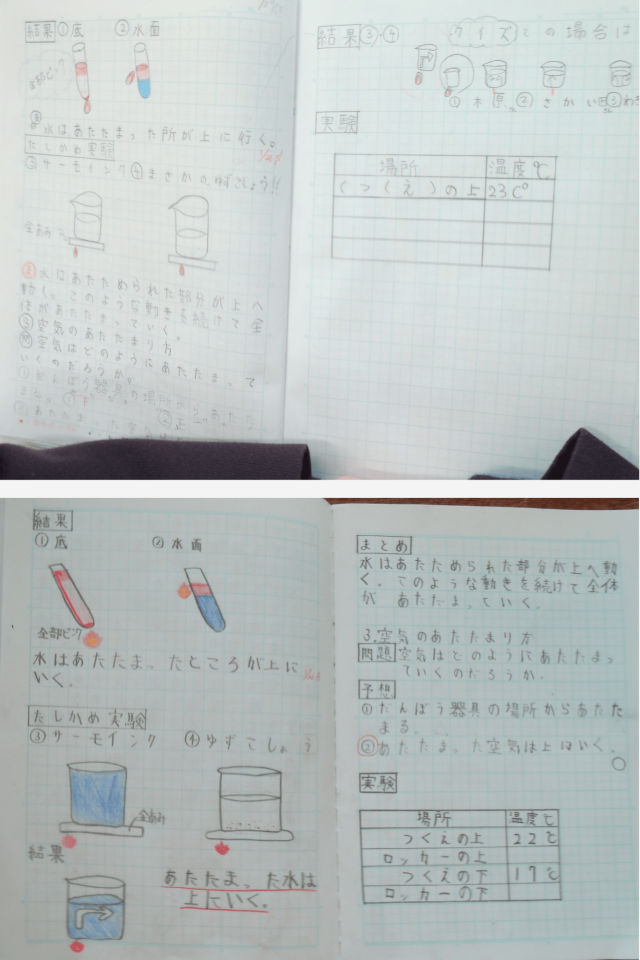 結果 ①底 ②水面
全部ピンク
水はあたたまった所が上に行く。
たしかめ実験
③サーモインク ④まさかの、ゆずこしょう!!
金あみ
水はあたためられた部分が上へ
動く。このような動きを続けて全
体があたたまっていく。
③空気のあたたまり方
問空気はどのようにあたたまって
いくのだろうか。
①だんぼう器具の場所からあたた
②あたたまった空気
結果③・④ クイズこの場合は
① ② さかい ③
実験
場所 温度℃
(つくえ)の上 23C°
結果
①底 ②水面
全部ピンク
水はあたたまったところが上に
いく。
たしかめ実験
③サーモインク ④ゆずこしょう
金あみ
結果
あたたまった水は
上にいく。
まとめ
水はあたためられた部分が上へ動
く。このような動きを続けて全体
が あたたまっていく。
3.空気のあたたまり方
問題 空気はどのようにあたたまっ
ていくのだろうか。
予想
①だんぼう器具の場所からあたた
まる。
②あたたまった空気は上にいく。
実験
場所 温度℃
つくえの上 22℃
ロッカーの上
つくえの下 17℃
ロッカーの下